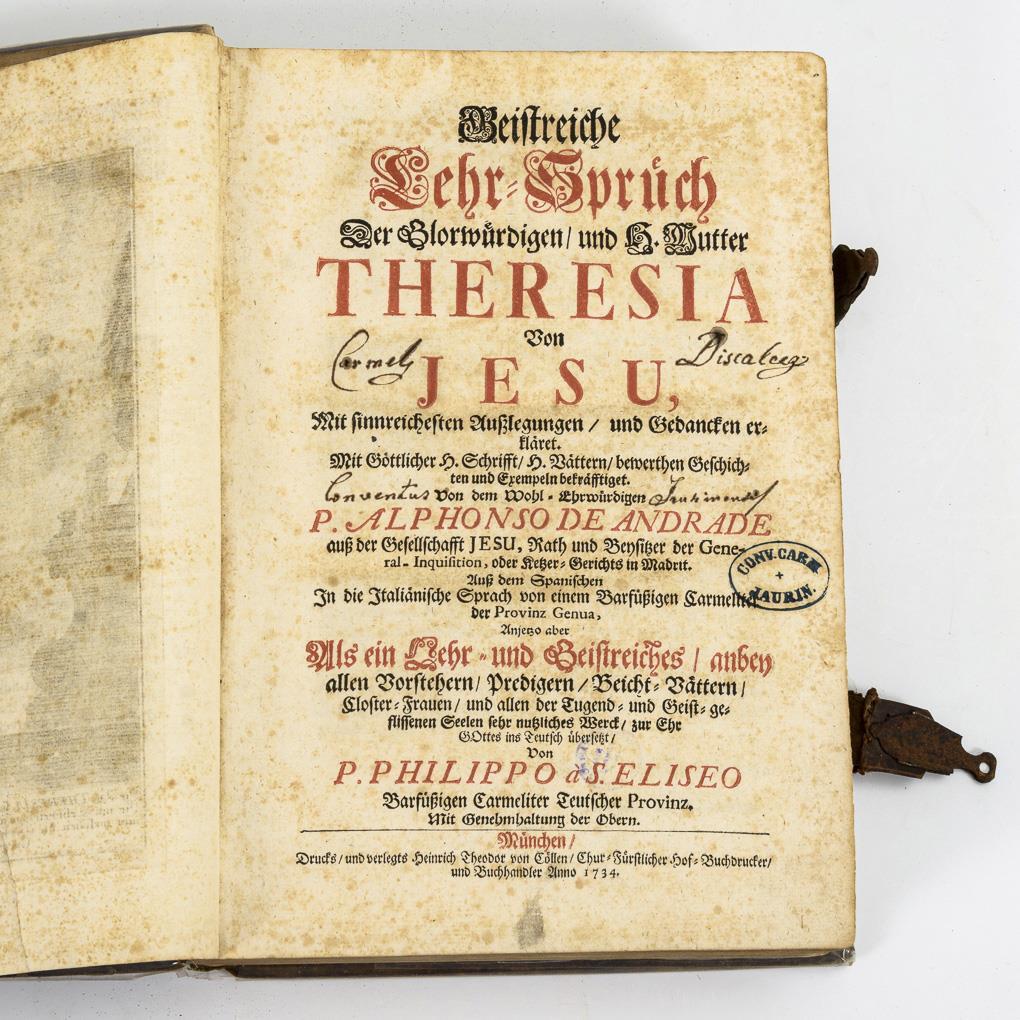 Geistreiche
Lehr-Sprüch
Der Glorwürdigen/ und H. Mutter
THERESIA
Von
Carmel
JESU,
Discalceat
Mit sinnreichesten Außlegungen / und Gedancken er-
kläret.
Mit Göttlicher H. Schrifft/ H. Vättern/ bewerthen Geschich-
ten und Exempeln bekräfftiget.
Conventus
Von dem Wohl-Ehrwürdigen
P. ALPHONSO DE ANDRADE
auß der Gesellschafft JESU, Rath und Beysitzer der Gene-
ral-Inquisition, oder Ketzer-Gerichts in Madrit.
Auß dem Spanischen
In die Italiänische Sprach von einem Barfüßigen Carmeliter
der Provinz Genua,
Anjetzo aber
Als ein Lehr-und Geistreiches / anbey
allen Vorstehern/ Predigern/ Beicht-Vättern/
Closter-Frauen/ und allen der Tugend- und Geist-ge-
flissenen Seelen sehr nutzliches Werck/ zur Ehr
GOttes ins Teutsch übersetzt/
Von
P. PHILIPPO à S. ELISEO
Barfüßigen Carmeliter Teutscher Provinz.
Mit Genehmhaltung der Obern.
München/
Drucks/ und verlegts Heinrich Theodor von Cöllen/ Chur-Fürstlicher Hof-Buchdrucker/
und Buchhandler Anno 1734.
CONV. CARM
+
TAURIN.